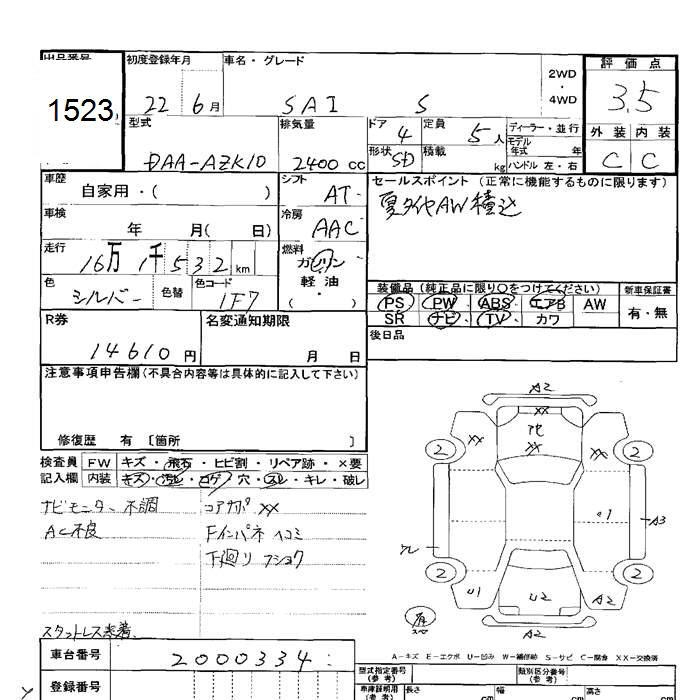 1523
初度登録年月
車名・グレード
22 6月
SAI S
2WD
・
4WD
評価点
3.5
外装 内装
C C
型式
DAA-AZK10
排気量
2400 cc
ドア
4
定員
5人
ディーラー・並行
モデル年式 年
形状
SD
積載
kg
ハンドル 左・右
車歴
自家用・( )
シフト
AT
セールスポイント (正常に機能するものに限ります)
夏タイヤAW積込
車検
年 月( 日)
冷房
AAC
走行
16万1千532km
燃料
ガソリン
軽油
( )
色
シルバー
色替
色コード
1F7
装備品 (純正品に限り○をつけてください)
新車保証書
PS PW ABS エアB AW
SR ナビ・TV・カワ
有・無
R券
14610円
名変通知期限
月 日
後日品
注意事項申告欄(不具合内容等は具体的に記入して下さい)
修復歴 有 〔箇所 〕
検査員記入欄
FW キズ・飛石・ヒビ割・リペア跡・×要
内装 キズ・汚レ・コゲ・穴・スレ・キレ・破レ
ナビモニター不調
コアサポXX
AC不良
Fインパネ ヘコミ
下廻り フショク
スタットレス装着
A2
XX
XX
XX
XX
2
2
U1
A3
2
2
U1
U2
A2
A2
A-キズ E-エクボ U-凹み W-補修跡 S-サビ C-腐食 XX-交換済
車台番号
2000334
登録番号
型式指定番号(参考)
類別区分番号(参考)
車庫証明用(参考)
長さ cm
幅 cm
高さ cm